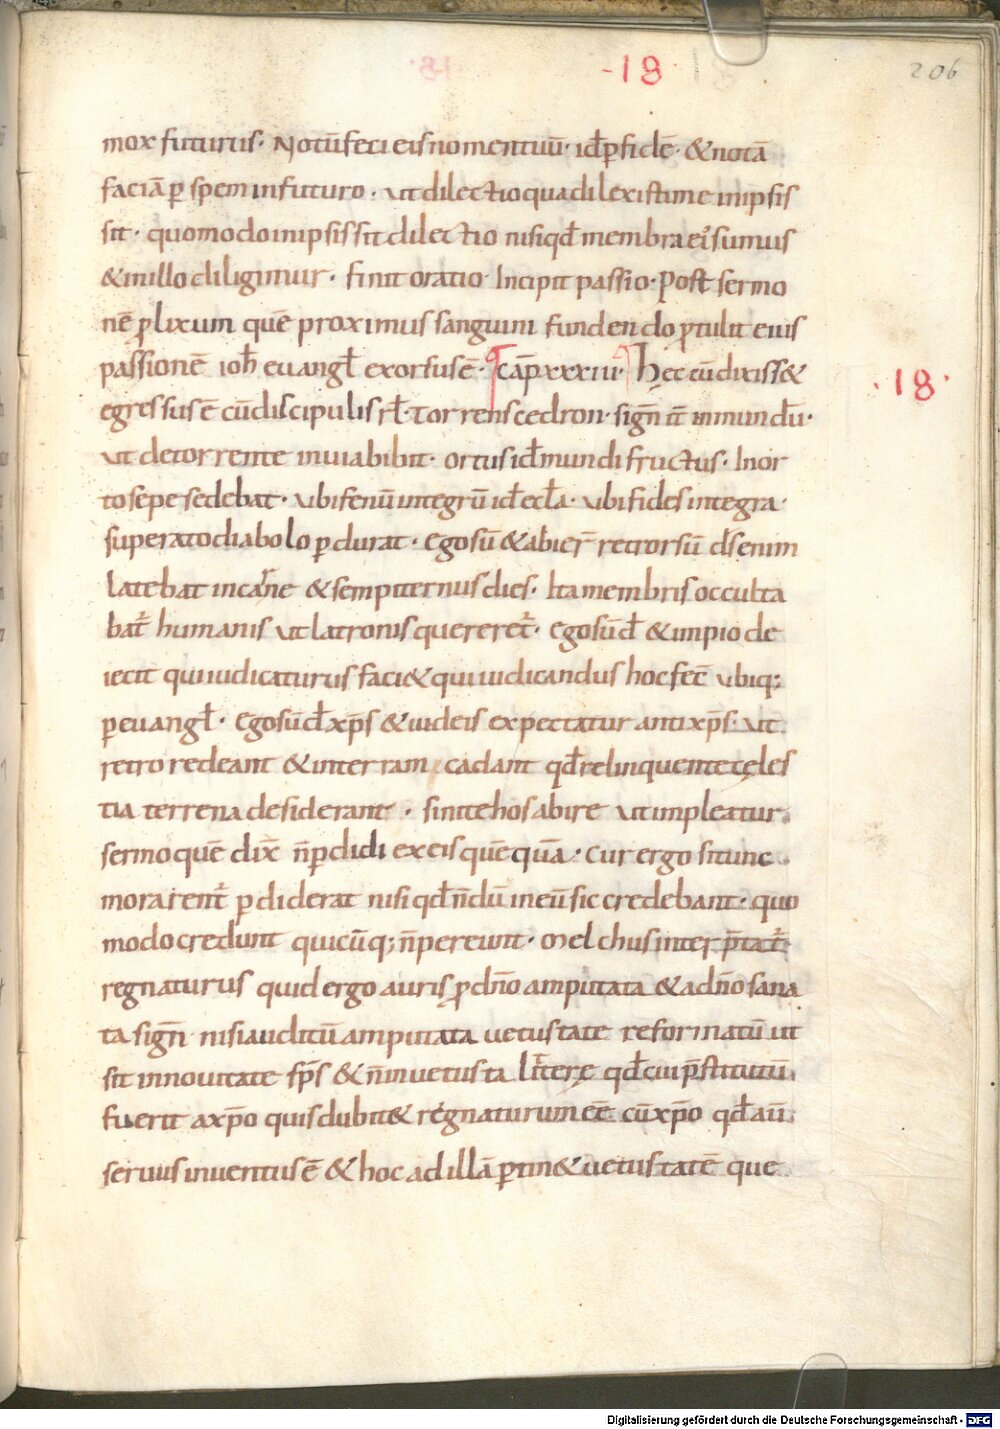 -18·
206
mox futurus. Notū feci eis nomen tuū. id ē p fidē. & notā
faciā p spem in futuro. ut dilectio qua dilexisti me in ipsis
sit. quomodo in ipsis sit dilectio nisi qđ membra ei᾽ sumus
& in illo diligimur. finit oratio. Incipit passio. Post sermo
nē plixum quē proximus sanguini fundendo ptulit eius
passionē ioh̄ euangl̄ exorsus ē. cap̄ xxxiiii. Hęc cū dixiss&
·18·
egressus ē cū discipulis rl̄. Torrens cedron. sign̄ it̄ in mundū.
ut de torrente in uia bibit. ortus id mundi fructus. In or
to sepe sedebat. ubi fenū integrū id ecl̄a. ubi fides integra.
superato diabolo p durat. Ego sū & abier̄ retrorsū ds̄ enim
latebat in carne & sempiternus dies. Ita membris occulta
bat᾽ humanis ut latronis quereret᾽. Ego sū d̄ & impio de
iecit qui iudicaturus faci& qui iudicandus hoc fec̄ ubiq;
p euangl̄. Ego sū d̄ xp̄s & iudeis expectatur antixp̄s. ut
retro redeant & in terram cadant qđ relinquente cęles
tia terrena desiderant. sinite hos abire ut impleatur
sermo quē dix̄ n̄ p didi ex eis quē quā. Cur ergo si tunc
morarent᾽ p diderat nisi qđ n̄dū in eū sic credebant. quo
modo credunt quicūq; n̄ pereunt. Melchus inter p̄tat᾽
regnaturus quid ergo auris p dn̄o amputata & a dn̄o sana
ta sign̄ nisi auditū amputata uetustate reformatū ut
sit in nouitate sp̄s & n̄ in uetusta lr̄tere qđ cui p̄stitutū
fuerit a xp̄o quis dubit& regnaturum eē cū xp̄o qđ aū
seruus inuentus ē & hoc ad illā ptin& uetustatē que
Digitalisierung gefördert durch die Deutsche Forschungsgemeinschaft - DFG